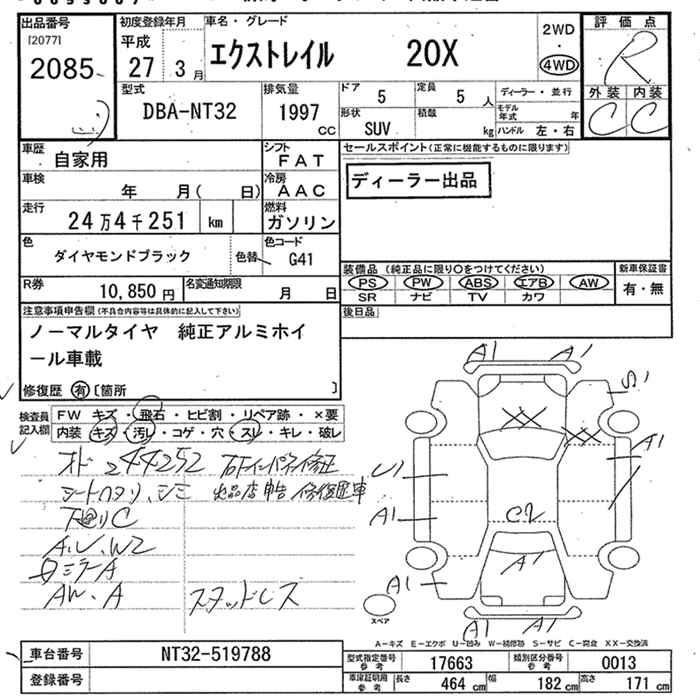 出品番号
[2077]
2085
初度登録年月
平成
27 3 月
車名・グレード
エクストレイル 20X
2WD
・
4WD
評価点
R
外装 内装
C C
型式
DBA-NT32
排気量
1997
CC
ドア 5
定員 5 人
形状
SUV
積載
kg
ディーラー・並行
モデル年式 年
ハンドル 左・右
車歴
自家用
シフト
FAT
車検
年 月( 日)
冷房
AAC
走行
24万4千251 km
燃料
ガソリン
色
ダイヤモンドブラック
色替
色コード
G41
R券
10,850 円
名変通知期限
月 日
セールスポイント(正常に機能するものに限ります)
ディーラー出品
装備品(純正品に限り○をつけてください)
PS PW ABS エアB AW
SR ナビ TV カワ
新車保証書
有・無
後日品
注意事項申告欄(不具合内容等は具体的に記入して下さい)
ノーマルタイヤ 純正アルミホイ
ール車載
修復歴 有 [箇所 ]
検査員
記入欄
FW キズ・飛石・ヒビ割・リペア跡・×要
内装 キズ・汚レ・コゲ・穴・スレ・キレ・破レ
オド244252 右インパネ修正
シートヘタリ、シミ 出品店申告 修復歴車
下回りC
A、U、W2
ミラーA
AW、A
スタッドレス
A1 A1
S1
XX
XX
A1
U1
A1
C2
A1
A1
A1
スペア
A-キズ E-エクボ U-凹み W-補修跡 S-サビ C-腐食 XX-交換済
車台番号 NT32-519788
登録番号
型式指定番号
参考
17663
類別区分番号
参考
0013
車庫証明用
参考
長さ 464 cm 幅 182 cm 高さ 171 cm